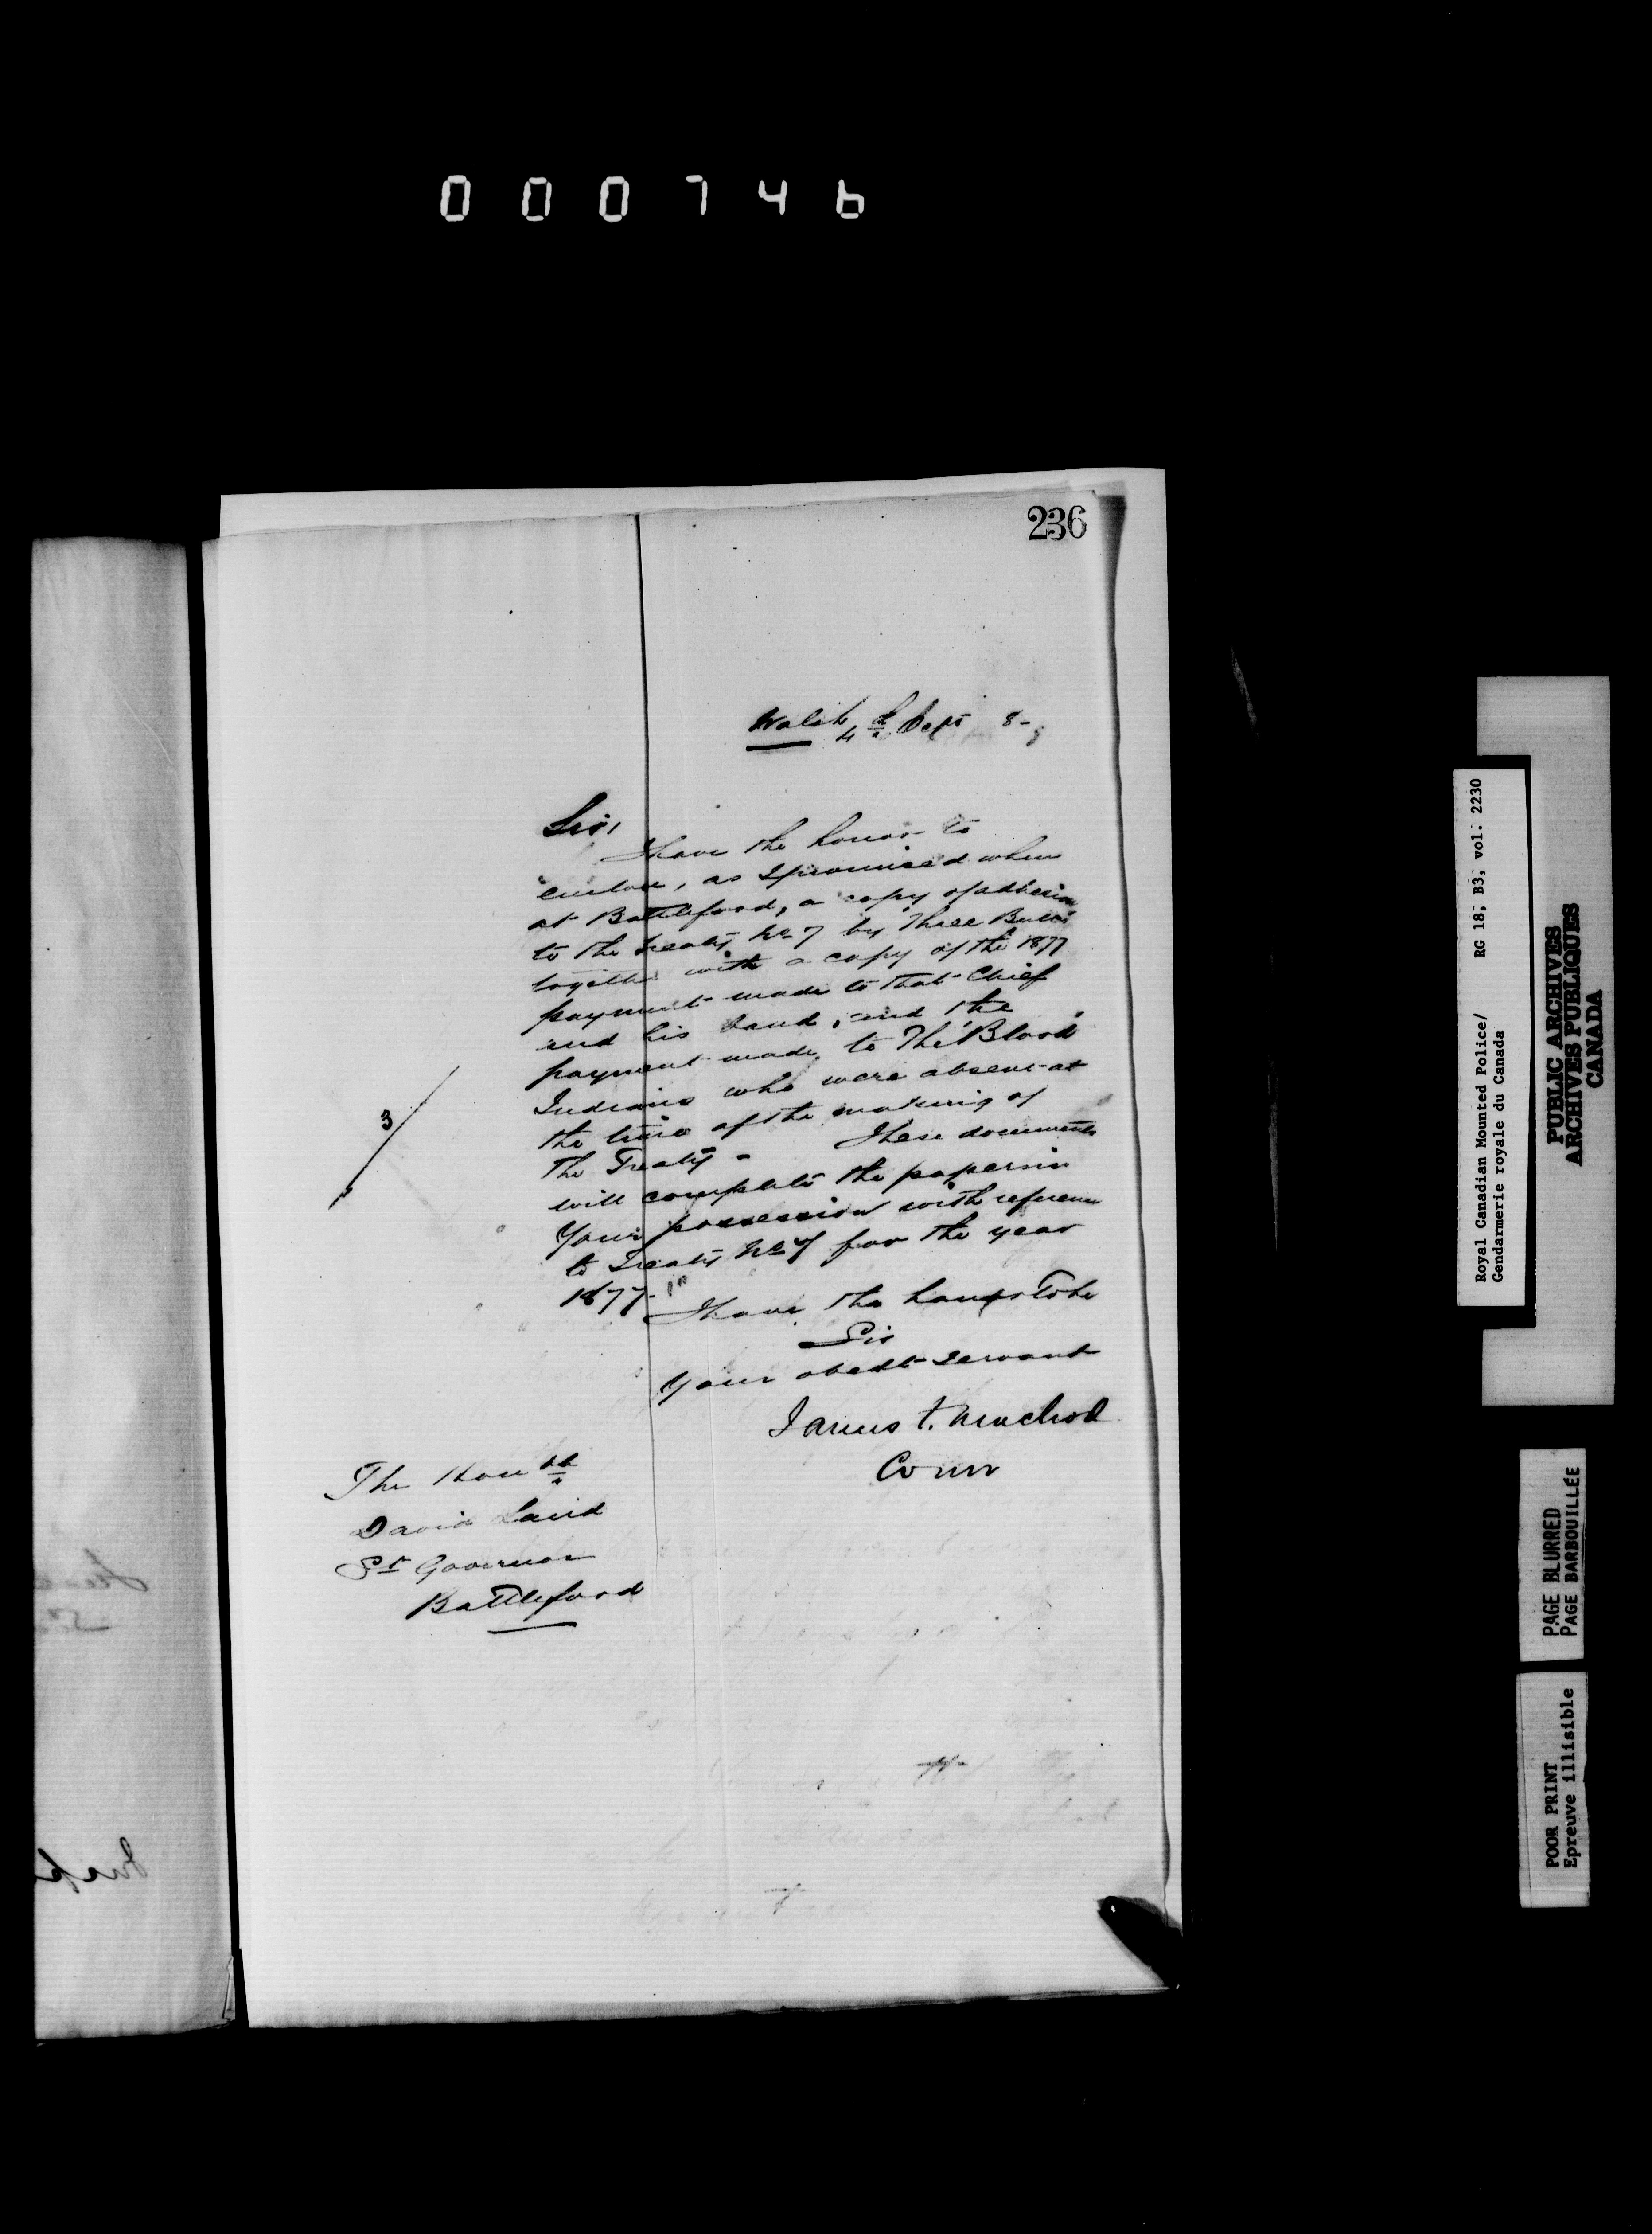 000746
236
Walsh 4th Sept 8-
Sir,
I have the honor to
enclose, as I promised when
at Battleford, a copy of adhesion
to the Treaty No 7 by "Three Bulls"
together with a copy of the 1877
payment made to that Chief
and his band, and the
payment made to the "Blood"
Indians who were absent at
the time of the making of
the Treaty - These documents
will complete the papers in
Your possession with reference
to Treaty No 7 for the year
1877-
I have the honor to be
Sir
Your obedt servant
James F. Macleod
Comr
3
The Honble
David Laird
Lt Governor
Battleford
Royal Canadian Mounted Police/ RG 18, B3, vol. 2230
Gendarmerie royale du Canada
PUBLIC ARCHIVES
ARCHIVES PUBLIQUES
CANADA
PAGE BLURRED
PAGE BARBOUILLÉE
POOR PRINT
Epreuve illisible